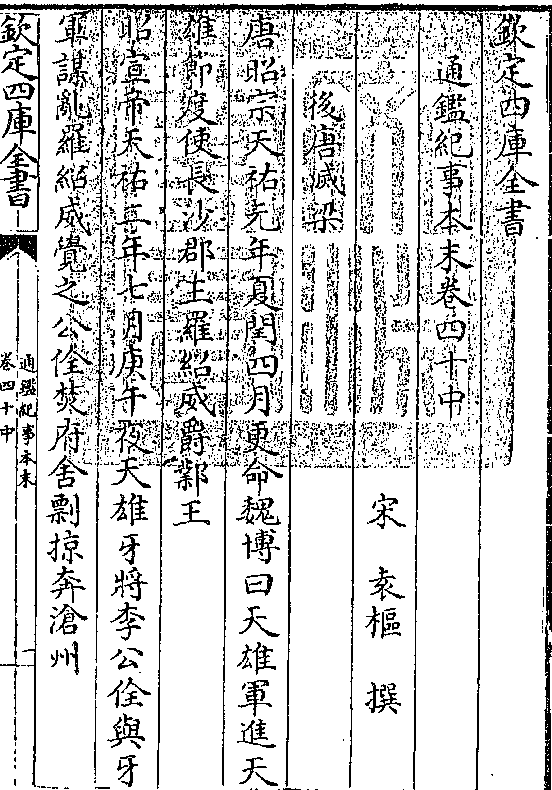 欽定四庫全書
通鑑紀事本末卷四十中
宋 袁樞 撰
後唐滅梁
唐昭宗天祐元年夏閏四月更命魏博曰天雄軍進天
雄節度使長沙郡王羅紹威爵鄴王
昭宣帝天祐二年七月庚午夜天雄牙將李公佺與牙
軍謀亂羅紹威覺之公佺焚府舍剽掠奔滄州
欽定四庫全書
通鑑紀事本末
卷四十中
一